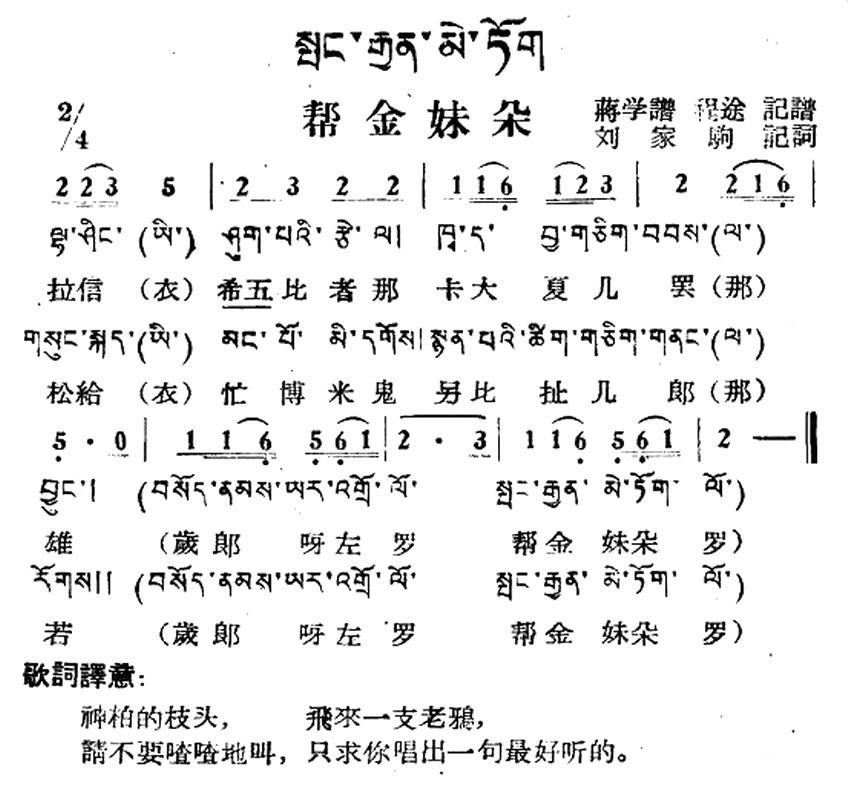 སྤང་རྒྱན་མེ་ཏོག
2/4 帮金妹朵 蔣学譜 程途 記譜
刘家駒 記詞
2 2 3 5 | 2 3 2 2 | 1 1 6 1 2 3 | 2 2 1 6 |
ལྷ་ཤིང་(ཡི་) ཤུག་པའི་རྩེ་ལ། ཁྭ་ད་ བྱ་གཅིག་བབས་(ལ་)
拉信（衣）希五比者那 卡大 夏几 罢（那）
གསུང་སྐད་(ཡི་) མང་པོ་ མི་དགོས། སྙན་པའི་ཚིག་གཅིག་གནང་(ལ་)
松給（衣）忙博米鬼 另比 扯几 郎（那）
5 · 0 | 1 1 6 5 6 1 | 2 · 3 | 1 1 6 5 6 1 | 2 — ‖
བྱུང་། (བསོད་ནམས་ཡར་འགྲོ་ལོ་ སྤང་རྒྱན་མེ་ཏོག་ལོ་)
雄 （歲郎 呀左罗 帮金妹朵罗）
རོགས།། (བསོད་ནམས་ཡར་འགྲོ་ལོ་ སྤང་རྒྱན་མེ་ཏོག་ལོ་)
若 （歲郎 呀左罗 帮金妹朵罗）
歌詞譯意：
神柏的枝头， 飛來一支老鴉，
請不要喳喳地叫，只求你唱出一句最好听的。